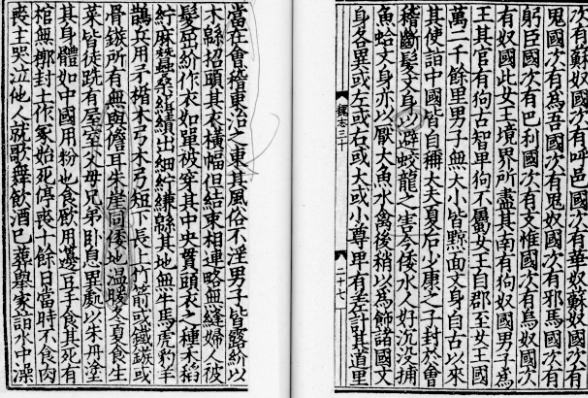 次有蘇奴國次有呼邑國次有華奴蘇奴國次有
鬼國次有為吾國次有鬼奴國次有邪馬國次有
躬臣國次有巴利國次有支惟國次有烏奴國次
有奴國此女王境界所盡其南有狗奴國男子為
王其官有狗古智卑狗不屬女王自郡至女王國
萬二千餘里男子無大小皆黥面文身自古以來
其使詣中國皆自稱大夫夏后少康之子封於會
稽斷髮文身以避蛟龍之害今倭水人好沉没捕
魚蛤文身亦以厭大魚水禽後稍以為飾諸國文
身各異或左或右或大或小尊卑有差計其道里
魏志三十
二十七
當在會稽東治之東其風俗不淫男子皆露紒以
木緜招頭其衣橫幅但結束相連略無縫婦人被
髮屈紒作衣如單被穿其中央貫頭衣之種禾稻
紵麻蠶桑緝績出細紵縑緜其地無牛馬虎豹羊
鵲兵用矛楯木弓木弓短下長上竹箭或鐵鏃或
骨鏃所有無與儋耳朱崖同倭地温暖冬夏食生
菜皆徒跣有屋室父母兄弟卧息異處以朱丹塗
其身體如中國用粉也食飲用籩豆手食其死有
棺無槨封土作冢始死停喪十餘日當時不食肉
喪主哭泣他人就歌舞飲酒已葬舉家詣水中澡